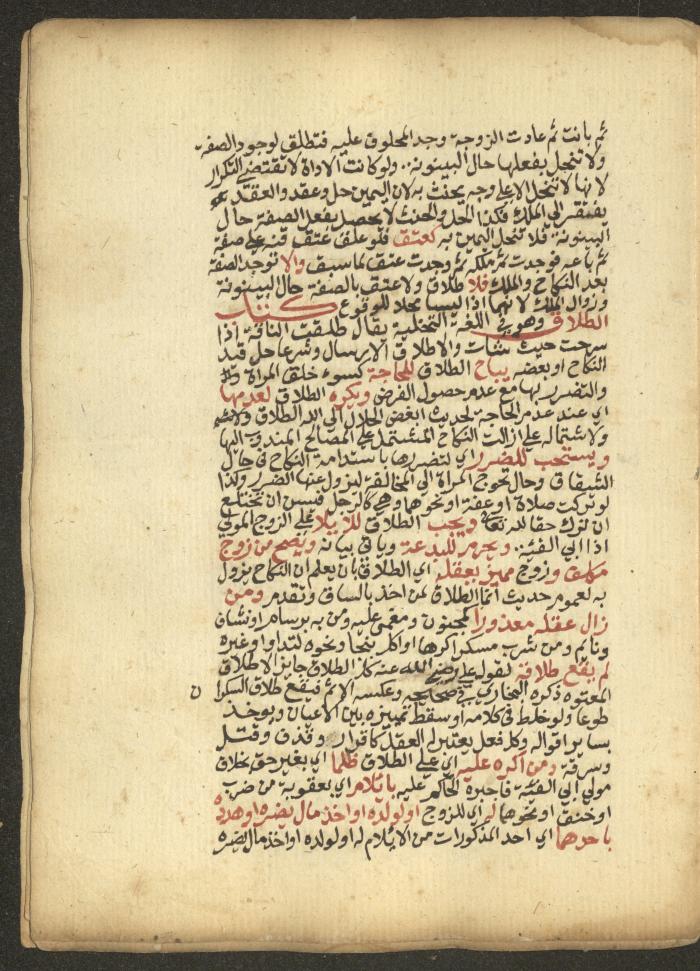 ثم بانت ثم عادت الزوجة وجد المحلوف عليه فتطلق لوجود الصفة
ولا تنحل بفعلها حال البينونة ولو كانت الاداة لا تقتضي التكرار
لانها لا تنحل الا على وجه يحنث به لان اليمين حل وعقد والعقد
يفتقر الى الملك فكذا الحل والحنث لا يحصل بفعل الصفة حال
البينونة فلا تنحل اليمين به كعتق فلو علق عتق قنه على صفة
ثم باعه فوجدت ثم ملكه ثم وجدت عتق لما سبق والا توجد الصفة
بعد النكاح والملك فلا طلاق ولا عتق بالصفة حال البينونة
وزوال الملك لانهما اذا ليسا محلا للوقوع كتاب
الطلاق وهو في اللغة التخلية يقال طلقت الناقة اذا
سرحت حيث شاءت والاطلاق الارسال وشرعا حل قيد
النكاح او بعضه يباح الطلاق للحاجة كسوء خلق المراة
والتضرر بها مع عدم حصول الغرض ويكره الطلاق لعدمها
اي عند عدم الحاجة لحديث ابغض الحلال الى الله الطلاق
ولاشتماله على ازالت النكاح المشتمل على المصالح المندوب اليها
ويستحب للضرر اي لتضررها باستدامة النكاح في حال
الشقاق وحال يحوج المراة الى المخالفة ليزول عنها الضرر وكذا
لو تركت صلاة او عفة او نحوها وهي كالرجل فيسن ان تختلع
ان ترك حقا لله تعالى ويجب الطلاق للايلا على الزوج المولي
اذا ابى الفيئة ويحرم للبدعة وياتي بيانه ويصح من زوج
مكلف وزوج مميز يعقله اي الطلاق بان يعلم ان النكاح يزول
به لعموم حديث انما الطلاق لمن اخذ بالساق وتقدم ومن
زال عقله معذورا كمجنون ومغمى عليه ومن به برسام او نشاف
ونايم ومن شرب مسكرا كرها او اكل بنجا ونحوه لتداو او غيره
لم يقع طلاقه لقول علي رضي الله عنه كل الطلاق جايز الا طلاق
المعتوه ذكره البخاري في صحيحه وعكسه الاثم فيقع طلاق السكران
طوعا ولو خلط في كلامه او سقط تمييزه بين الاعيان ويوخذ
بساير اقواله وكل فعل يعتبر له العقد كاقرار وقذف وقتل
وسرقة ومن اكره عليه اي على الطلاق ظلما اي بغير حق بخلاف
مولي ابى الفيئة فاجبره الحاكم عليه بايلام اي بعقوبة من ضرب
او خنق او نحوها له اي للزوج او لولده او اخذ مال يضره او هدده
باحدها اي احد المذكورات من الايلام له او لولده او اخذ مال يضره